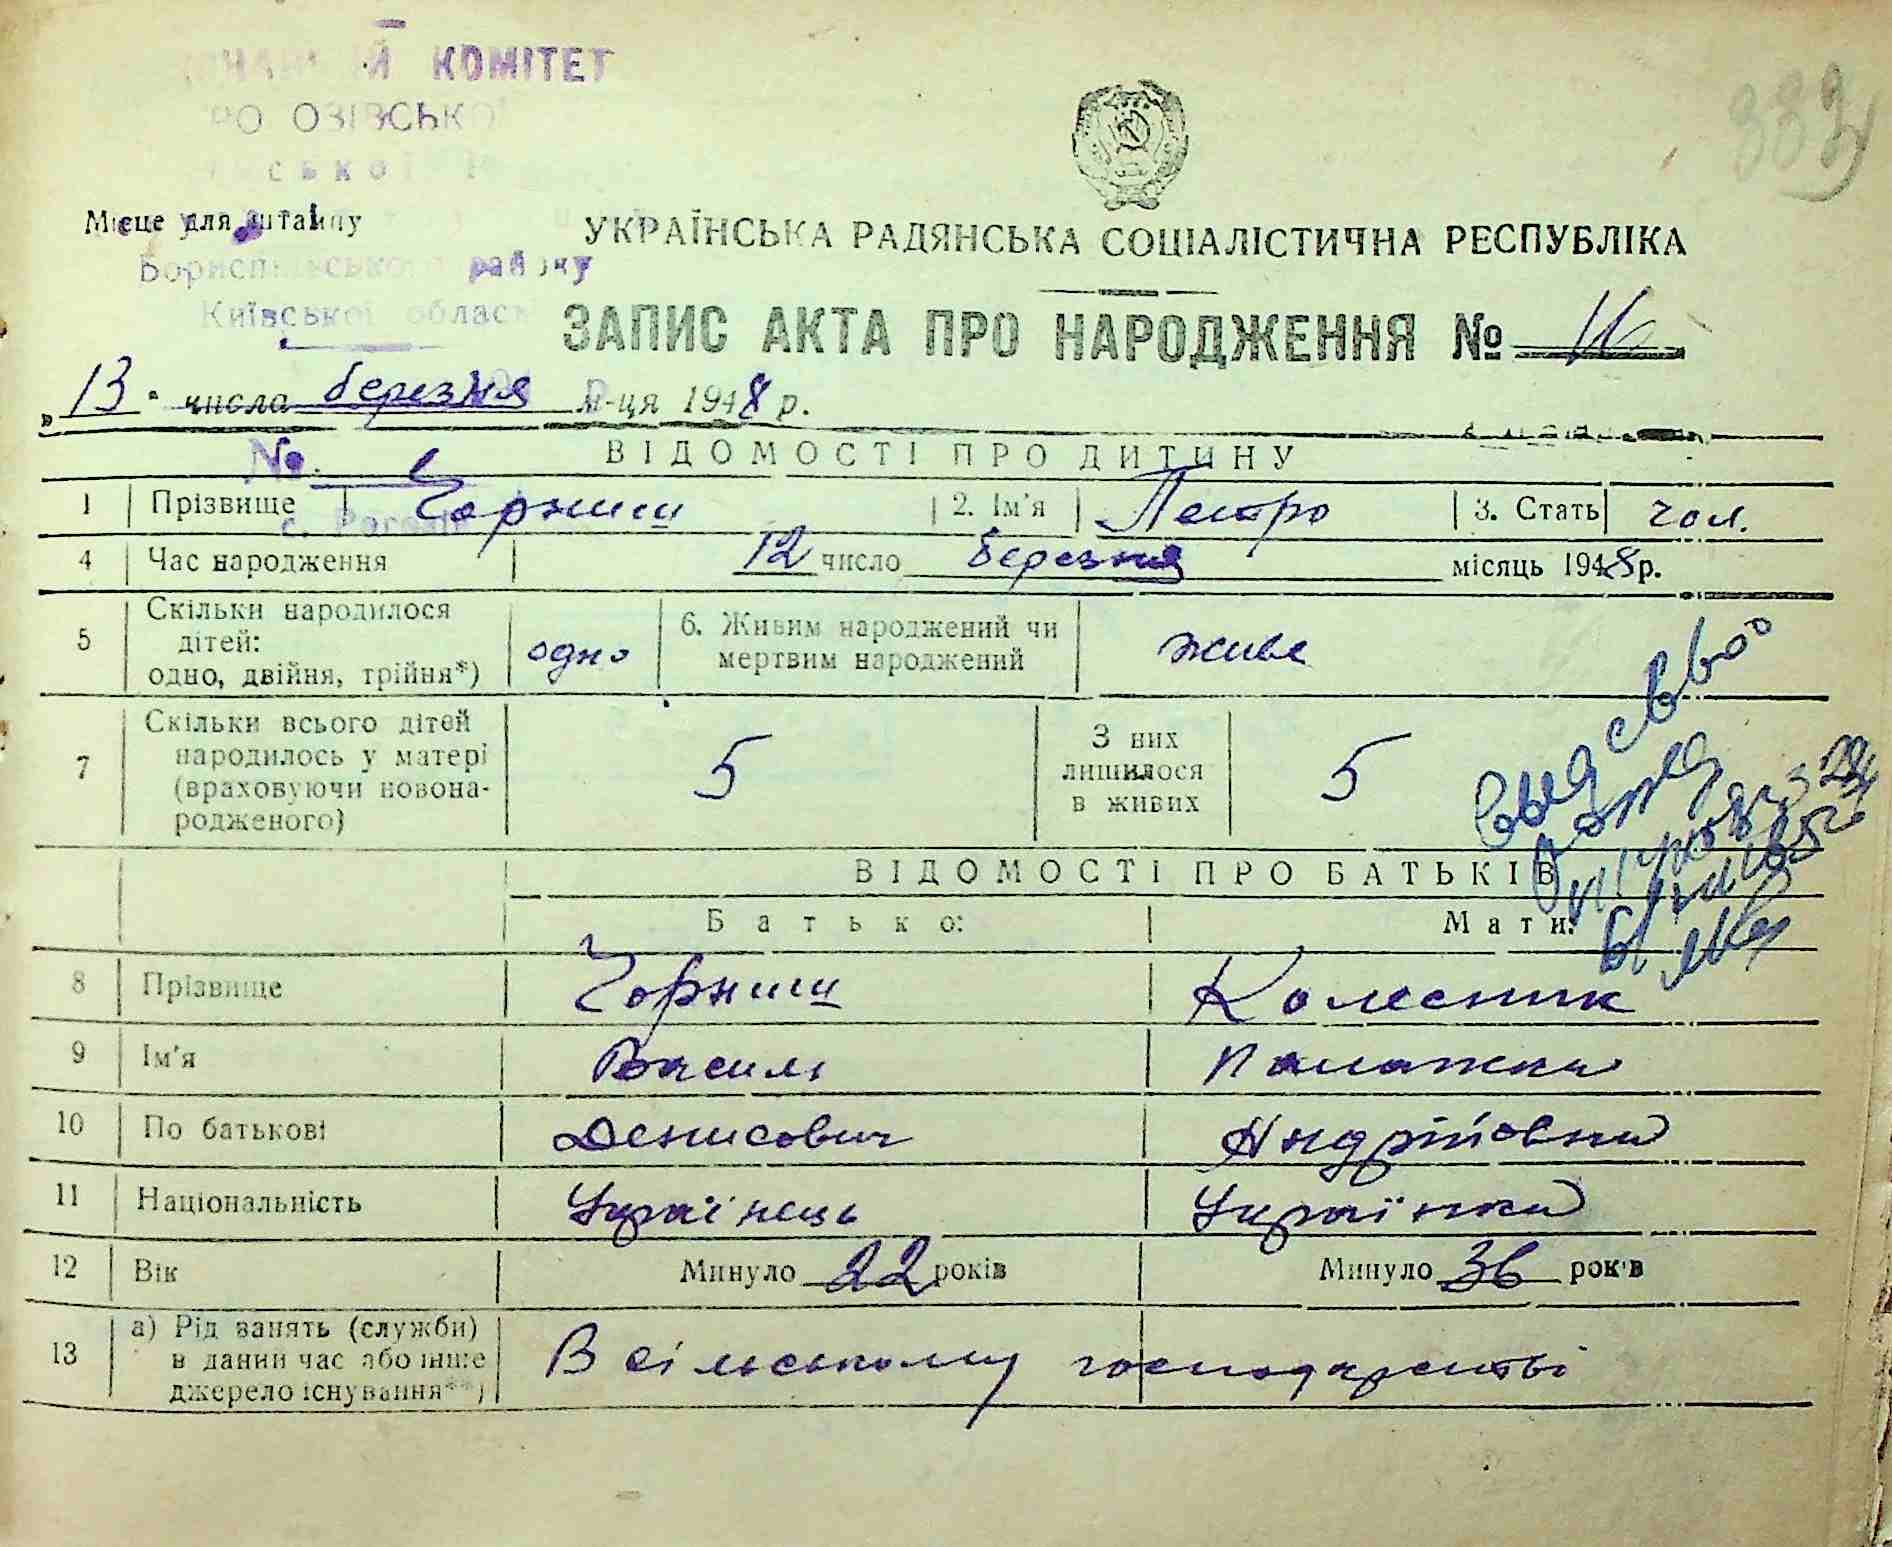 КОМІТЕТ
Бориспільського району
Київської
Місце для штампу
332
УКРАЇНСЬКА РАДЯНСЬКА СОЦІАЛІСТИЧНА РЕСПУБЛІКА
ЗАПИС АКТА ПРО НАРОДЖЕННЯ № 16
„13" числа березня м-ця 1948 р.
№
ВІДОМОСТІ ПРО ДИТИНУ
1 Прізвище Чорниш 2. Ім'я Петро 3. Стать чол.
4 Час народження 12 число березня місяць 1948 р.
5 Скільки народилося дітей: одно, двійня, трійня*) одно 6. Живим народжений чи мертвим народжений живе
7 Скільки всього дітей народилось у матері (враховуючи новонародженого) 5 З них лишилося в живих 5
ВІДОМОСТІ ПРО БАТЬКІВ
Батько: Мати:
8 Прізвище Чорниш Колесник
9 Ім'я Василь Палажка
10 По батькові Денисович Андріївна
11 Національність Українець Українка
12 Вік Минуло 22 років Минуло 36 років
13 а) Рід занять (служби) в даний час або інше джерело існування**) В сільському господарстві